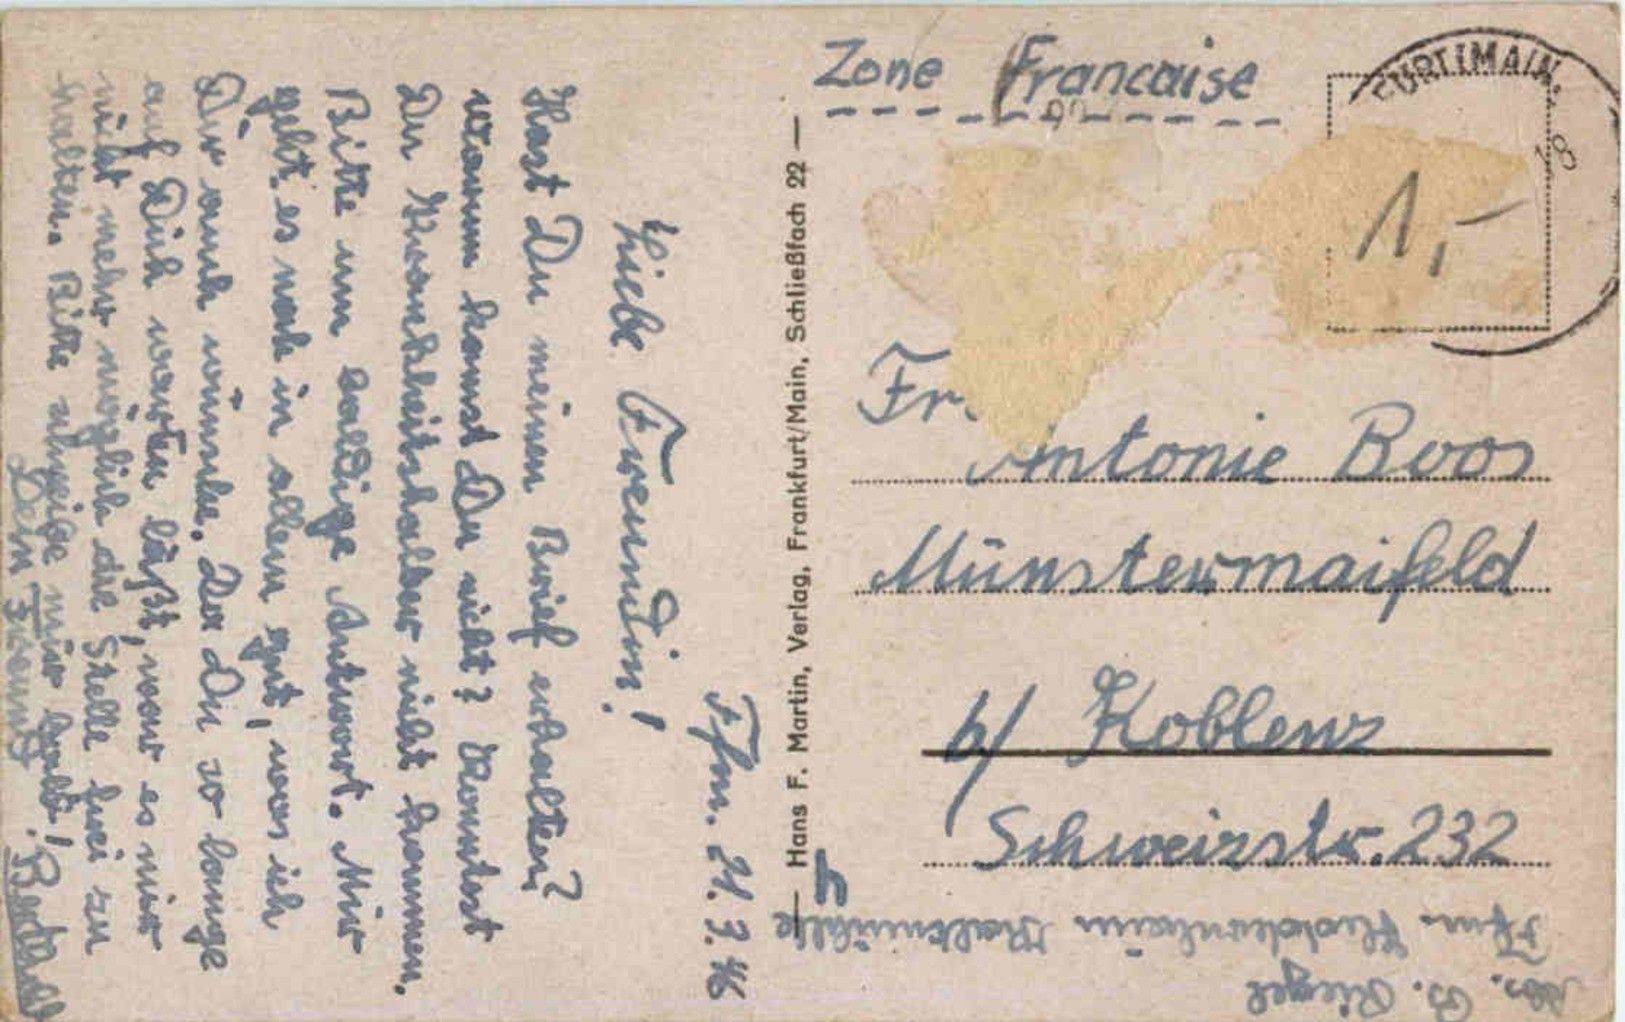 Zone Francaise
FURT (MAIN
18
1,-
Fr.
Antonie Boos
Münstermaifeld
b/ Koblenz
Schweizstr. 232
Hans F. Martin, Verlag, Frankfurt/Main, Schließfach 22
Ffm. 21. 7. 46
Liebe Freundin!
Hast Du meinen Brief erhalten?
warum kamst Du nicht? Konntest
Du Krankheitshalber nicht kommen.
Bitte um baldige Antwort. Mir
geht es noch in allem gut, was ich
Dir auch wünsche. Da Du so lange
auf Dich warten läßt, war es mir
nicht mehr möglich die Stelle frei zu
halten. Bitte schreibe mir bald!
Dein Freund
Abs. B. Riegel
Ffm. Heddernheim
4